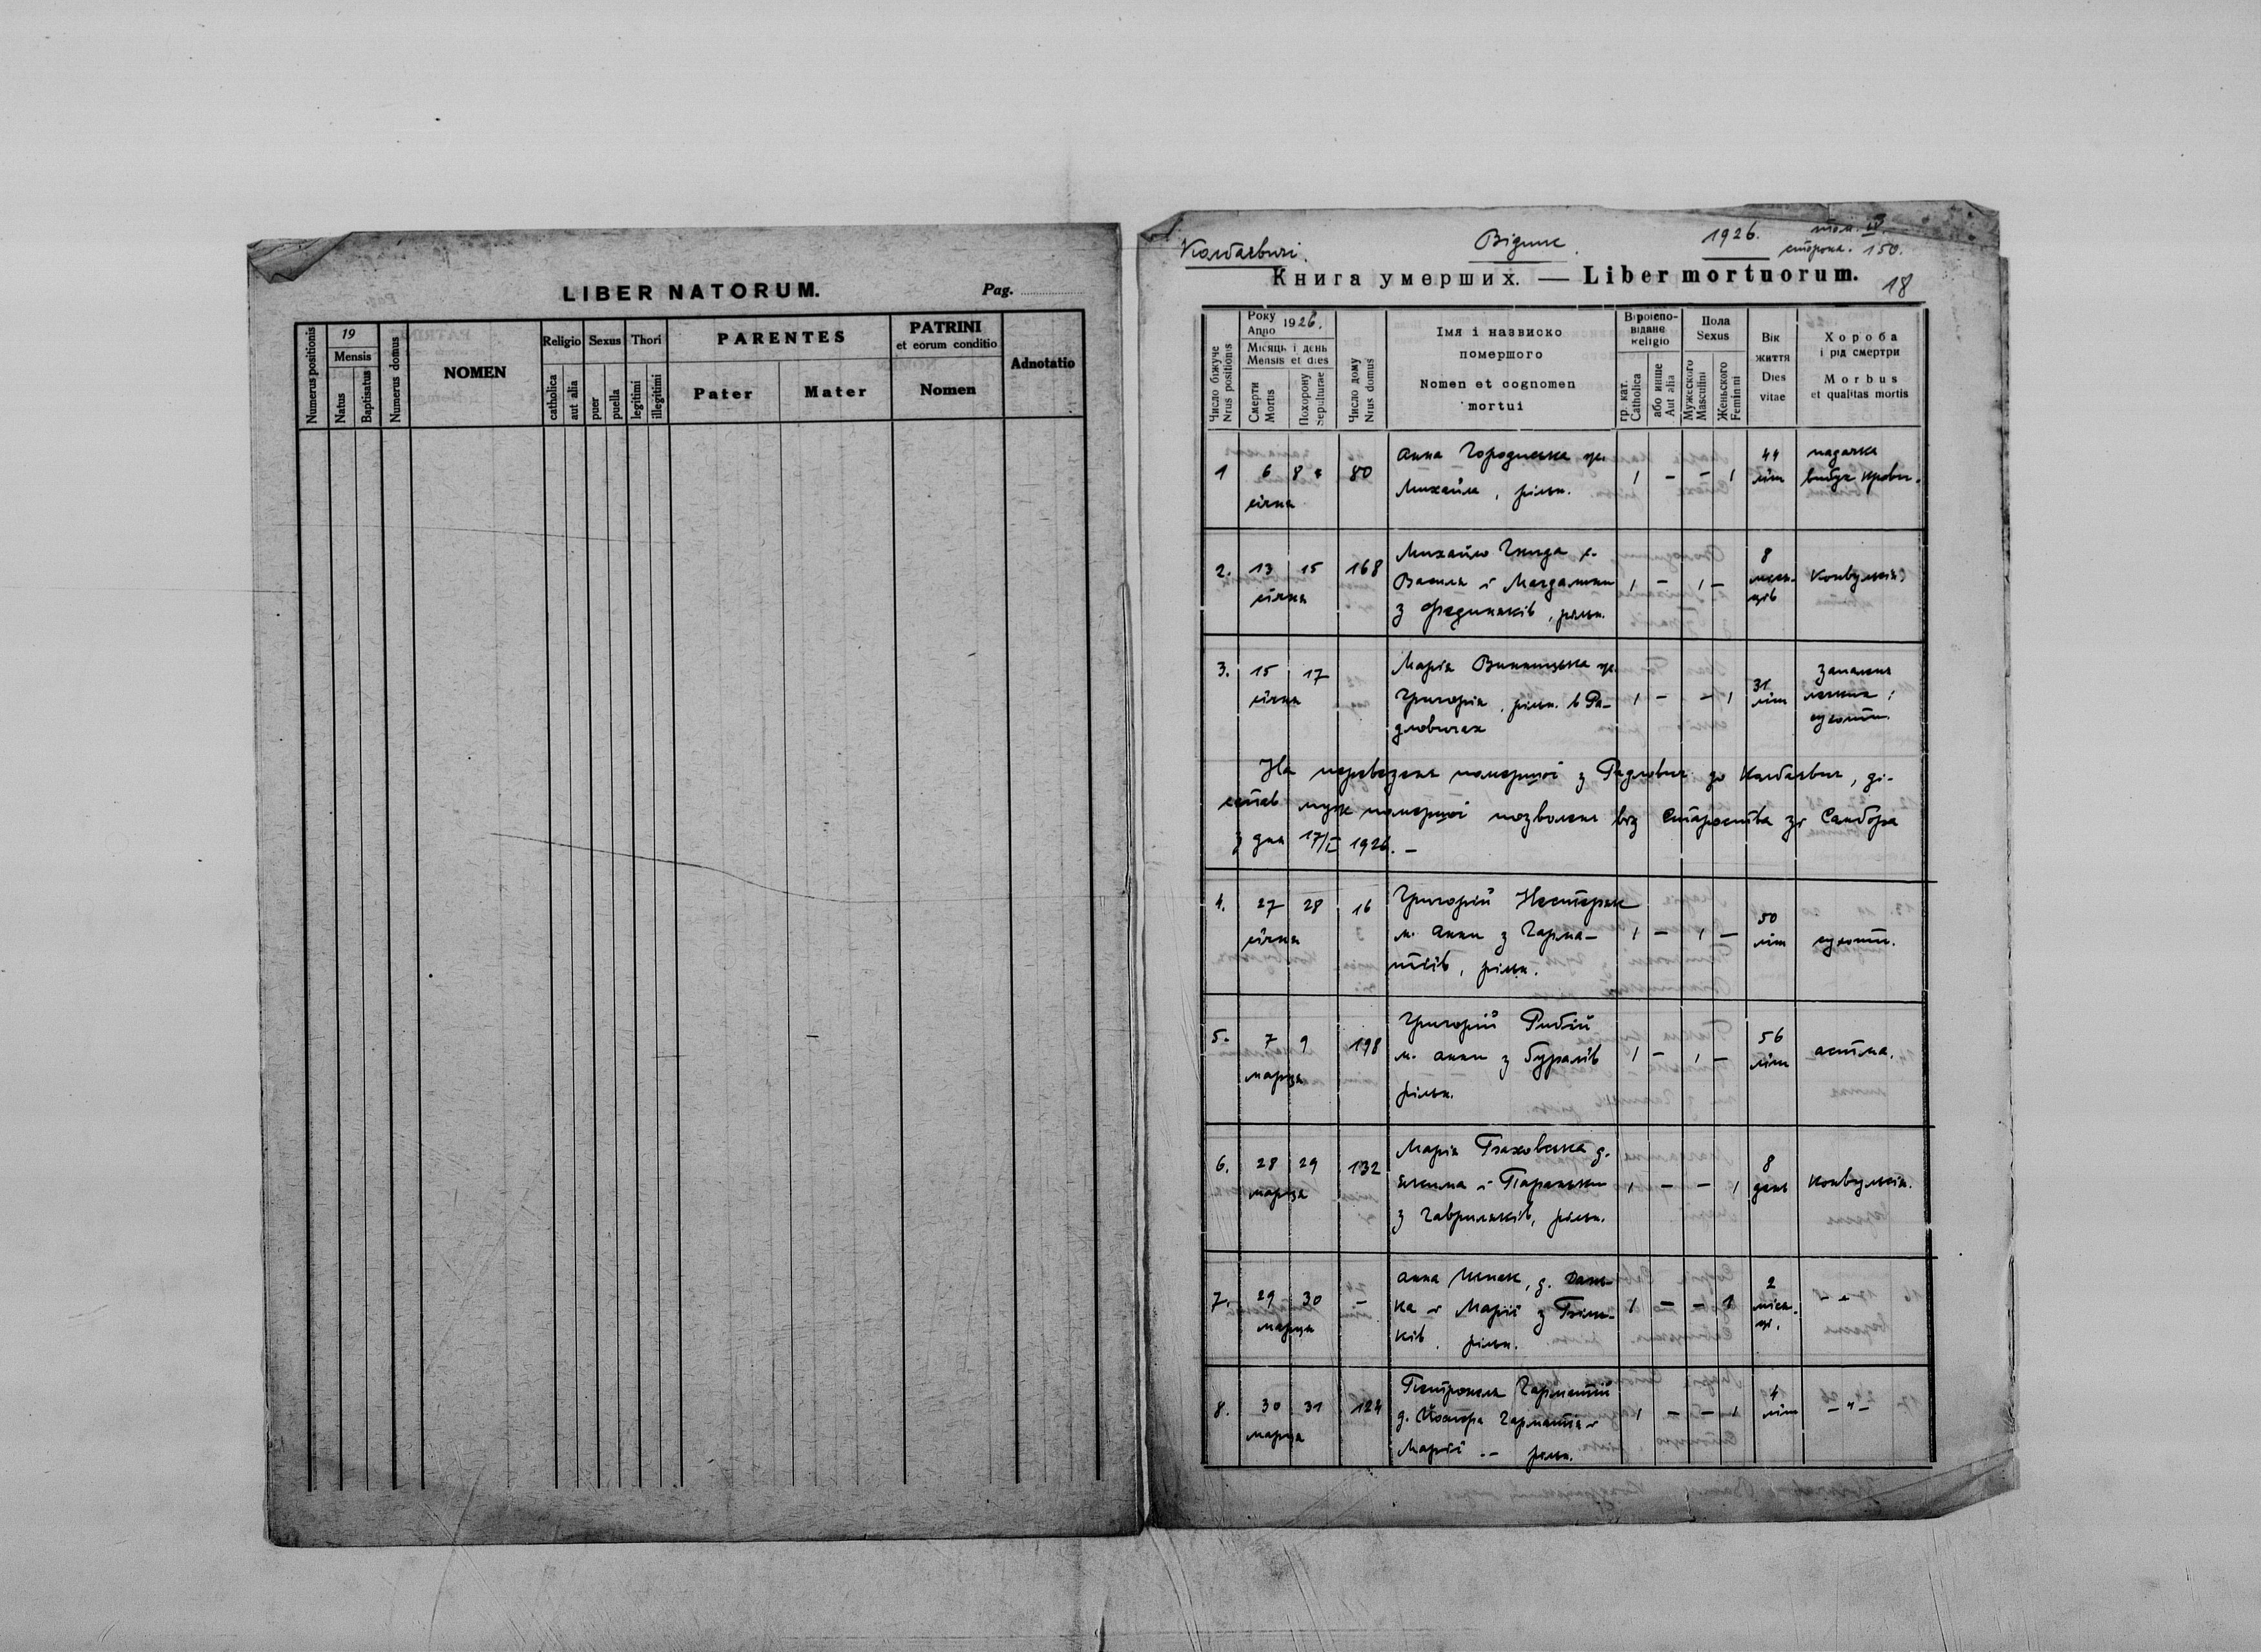 LIBER NATORUM.
Pag.
Numerus positionis
19
Mensis
Natus
Baptisatus
Numerus domus
NOMEN
Religio
catholica
aut alia
Sexus
puer
puella
Thori
legitimi
illegitimi
PARENTES
Pater
Mater
PATRINI
et eorum conditio
Nomen
Adnotatio
Відпис
1926.
том. IV.
сторона. 150.
Книга умерших. — Liber mortuorum.
18
Число біжуче
Nrus positionis
Року
Anno 1926.
Місяць і день
Mensis et dies
Смерти
Mortis
Похорону
Sepulturae
Число дому
Nrus domus
Імя і назвиско
помершого
Nomen et cognomen
mortui
Віроісповідане
Religio
гр. кат.
Catholica
або инше
Aut alia
Пола
Sexus
Мужеского
Masculini
Женьского
Feminini
Вік
життя
Dies
vitae
Хороба
і рід смертри
Morbus
et qualitas mortis
1 6 8 80 Анна Городиська 1 – – 1 44
січня Михайла, рільн. літ крови.
2. 13 15 168 Михайло 8
січня Василя і Магдалини 1 – 1 – конвульсія
з Фединяків, рільн.
3. 15 17 Марія Винницька 31 запаленя
січня Григорія, рільн. в Ра- 1 – – 1 літ
дловичах
На перевезенє помершої з Радлович до Колбаєвич, ді-
став муж помершої позволенє від Староства зі Самбора
з дня 17/I 1926. –
4. 27 28 16 Григорій Нестерак 50
січня м. Анни з Гарма- 1 – 1 – літ сухоти.
тіїв, рільн.
5. 7 9 198 Григорій Рибій 56
марца м. Анни з Буралів 1 – 1 – літ астма.
рільн.
6. 28 29 132 Марія д. 8
марца Якима і Параньки 1 – – 1 день конвульсія.
з Гавриляків, рільн.
7. 29 30 – Анна д. Дань- 2
марца ка і Марії з 1 – – 1 міся- – „ –
ків. рільн. ці.
8. 30 31 124 Петронеля Гарматій 4
марца д. Йосифа Гарматія і 1 – – 1 літ – „ –
Марії -- рільн.